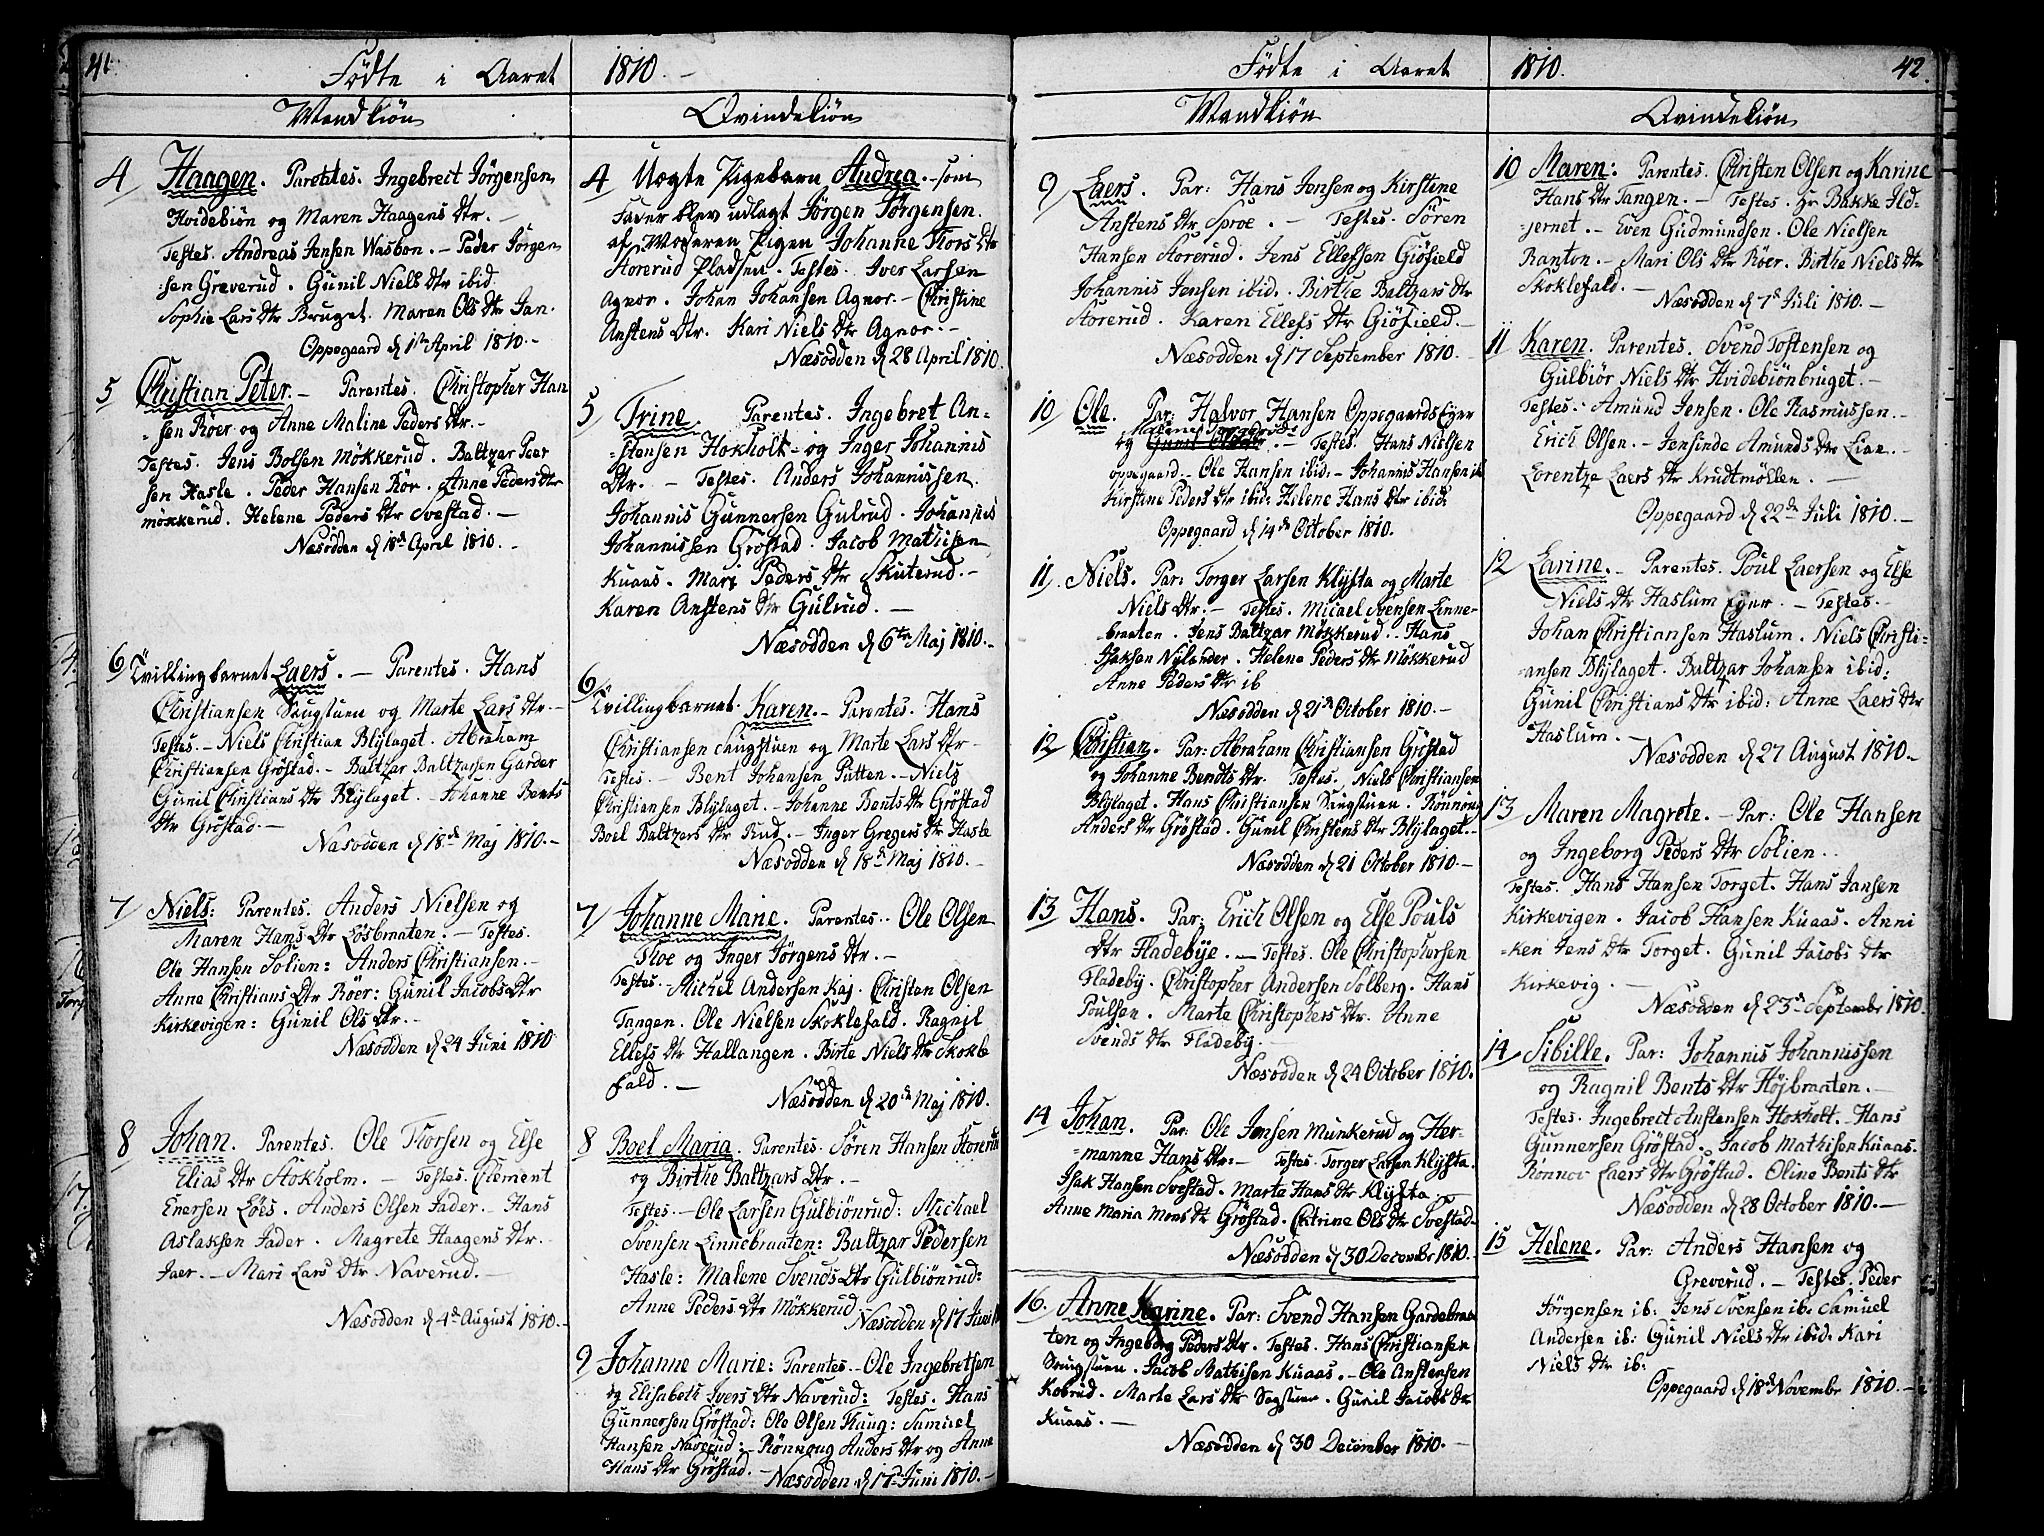 41.
Födte i Aaret 1810. -
Mandkiön
4 Haagen. Parentes. Ingebrect Jörgensen
Hvidebiön og Maren Haagens Dtr. -
Testes. Andreas Jensen Wasbon. - Peder Jörgen
sen Greverud. Gunil Niels Dtr ibid
Sophie Lars Dtr Bruget. Maren Ols Dtr Jan.
Oppegaard d 1ste April 1810. -
5 Christian Peter. - Parentes. Christopher Han
sen Röer og Anne Maline Peders Dtr. -
Testes. Jens Bolsen Mökkerud. Baltzar Peer
sen Hasle. Peder Hansen Rör. Anne Peders Dtr
mökkerud. Helene Peders Dtr Svestad. -
Næsodden d 18de April 1810. -
6 Tvillingbarnet Laers. - Parentes. Hans
Christiansen Saugstuen og Marte Lars Dtr -
Testes. - Niels Christian Blijlaget. Abraham
Christiansen Gröstad. - Baltzar Baltzarsen Garder
Gunil Christians Dtr Blijlaget. - Johanne Bents
Dtr Gröstad. -
Næsodden d 18de Maj 1810. -
7 Niels: Parentes. Anders Nielsen og
Maren Hans Dtr Lösbraaten. - Testes.
Ole Hansen Solien: Anders Christiansen. -
Anne Christians Dtr Röer: Gunil Jacobs Dtr
Kirkevigen: Gunil Ols Dtr. -
Næsodden d 24 Juni 1810
8 Johan. Parentes. Ole Thorsen og Else
Elias Dtr Stokholm. - Testes. Clement
Enersen Löes. Anders Olsen Jader. - Hans
Aslaksen Jader. Magrete Haagens Dtr. -
Jaer. - Mari Lars Dtr Naverud. -
Næsodden d 4de August 1810. -
Qvindekiön
4 Uægte Pigebarn Andrea. - som
Fader blev udlagt Jörgen Jörgensen.
af Moderen Pigen Johanne Thors Dtr
Storerud Pladsen. Testes. Iver Larsen
Agnor. Johan Johansen Agnor. - Christine
Anstens Dtr. Kari Niels Dtr Agnor. -
Næsodden d 28 April 1810.
5 Trine. Parentes. Ingebret An-
stensen Hokholt - og Inger Johannis
Dtr. - Testes. Anders Johannissen.
Johannis Gunnersen Gulrud. Johannis
Johannissen Gröstad. Jacob Mathisen
Kuaas. Mari Peders Dtr Skuterud. -
Karen Anstens Dtr Gulrud. -
Næsodden d 6te Maj 1810. -
6 Tvillingbarnet. Karen. - Parentes. Hans
Christiansen Saugstuen og Marte Lars Dtr -
Testes. - Bent Johansen Putten. - Niels
Christiansen Blijlaget. - Johanne Bents Dtr Gröstad
Boel Baltzers Dtr Rud. - Inger Gregers Dtr Hasle
Næsodden d 18de Maj 1810. -
7 Johanne Marie. Parentes. Ole Olsen
Floe og Inger Jörgens Dtr. -
Testes. Michel Andersen Kaj. Christen Olsen
Tangen. Ole Nielsen Skoklefald. Ragnil
Ellefs Dtr Hallangen. Birte Niels Dtr Skokle
fald. -
Næsodden d 20de Maj 1810.
8 Boel Maria. Parentes. Sören Hansen Storerud
og Birthe Baltzars Dtr. -
Testes. - Ole Larsen Gulbiönrud: Michael
Svensen Linnebraaten: Baltzar Pedersen
Hasle: Malene Svends Dtr Gulbiönrud:
Anne Peders Dtr Mökkerud
Næsodden d 17 Juni
9 Johanne Marie: Parentes. - Ole Ingebretsen
og Elisabeth Ivers Dtr Naverud: Testes. Hans
Gunnersen Gröstad: Ole Olsen Kaug: Samuel
Hansen Naverud: - Rönnoug Anders Dtr og Anne
Hans Dtr Gröstad. - Næsodden d 17de Juni 1810. -
Födte i Aaret 1810. 42.
Mandkiön
9 Laers. Par: Hans Jensen og Kirstine
Anstens Dtr Sproe. - Testes. Sören
Hansen Storerud. Jens Ellefsen Giöfield
Johannis Jensen ibid. Birthe Baltzars Dtr
Storerud. Karen Ellefs Dtr Giöfield. -
Næsodden d 17 September 1810.
10 Ole. Par: Halvor Hansen Oppegaards Eyer
og - Testes. Hans Nielsen
oppegaard. - Ole Hansen ibid: - Johannis Hansen ib
Kirstine Peders Dtr ibid: Helene Hans Dtr ibid:
Oppegaard d 14de October 1810.
11. Niels. Par: Torger Larsen Klijsta og Marte
Niels Dtr. - Testes. Micael Svensen Linne-
braaten. Jens Baltzar Mökkerud. - Hans
Isaksen Nylander. Helene Peders Dtr Mökkerud
Anne Peders Dtr ib
Næsodden d 21de October 1810. -
12 Christian. Par: Abraham Christiansen Gröstad
og Johanne Bendts Dtr. Testes. Niels Christiansen
Blijlaget. Hans Christiansen Saugstuen. Rönnoug
Anders Dtr Gröstad. Gunil Christens Dtr Blijlaget. -
Næsodden d 21 October 1810. -
13 Hans. Par: Erich Olsen og Else Pouls
Dtr Fladebije. - Testes. Ole Christophersen
Fladeby. Christopher Andersen Solberg. Hans
Poulsen. Marte Christophers Dtr. Anne
Svends Dtr Fladeby. -
Næsodden d 24 October 1810.
14 Johan. Par: Ole Jensen Munkerud og Her-
manne Hans Dtr: - Testes. Torger Larsen Klijsta.
Isak Hansen Svestad. Marte Hans Dtr Klijsta
Anne Maria Mons Dtr Gröstad. Catrine Ols Dtr Svestad.
Næsodden d 30 December 1810. -
16. Anne Karine. Par: Svend Hansen Gardebraa
ten og Ingeborg Peders Dtr. Testes. Hans Christiansen
Saugstuen. Jacob Mathisen Kuaas. - Ole Anstensen
Kobrud. Marte Lars Dtr Sagstuen. Gunil Jacobs Dtr
Kuaas. -
Næsodden d 30 December 1810. -
Qvindekiön
10 Maren: Parentes. Christen Olsen og Karine
Hans Dtr Tangen. - Testes. Hr Bakke Ild-
jernet. - Even Gudmundsen. Ole Nielsen
Ranton. - Mari Ols Dtr Röer. Birthe Niels Dtr
Skoklefald. -
Næsodden d 7de Juli 1810. -
11 Karen. Parentes. Svend Tostensen og
Gulbiör Niels Dtr Hvidebiönbruget. -
Testes: Amund Jensen. Ole Rasmussen. -
Erich Olsen. - Jensinde Amunds Dtr Lian. -
Lorentze Laers Dtr Krudtmöllen. -
Oppegaard d 22de Juli 1810. -
12 Larine. - Parentes. Poul Laersen og Else
Niels Dtr Haslum Eyer. - Testes. -
Johan Christiansen Haslum. Niels Christi-
ansen Blijlaget. Baltzar Johansen ibid:
Gunil Christians Dtr ibid: Anne Laers Dtr
Haslum. -
Næsodden d 27 August 1810. -
13 Maren Magrete. - Par: Ole Hansen
og Ingeborg Peders Dtr Solien. -
Testes. Hans Hansen Torget. Hans Jansen
Kirkevigen. Jacob Hansen Kuaas. Anni
ken Jens Dtr Torget. Gunil Jacobs Dtr
Kirkevig. -
Næsodden d 23de September 1810.
14 Sibille. Par: Johannis Johannissen
og Ragnil Bents Dtr Höjbraaten. -
Testes. Ingebrect Anstensen Hokholt. - Hans
Gunnersen Gröstad. Jacob Mathisen Kuaas.
Rönnov Laers Dtr Gröstad. Oline Bents Dtr
Næsodden d 28 October 1810. -
15 Helene. Par: Anders Hansen og
Greverud. - Testes. Peder
Jörgensen ib: Jens Svensen ib: Samuel
Andersen ib: Gunil Niels Dtr ibid: Kari
Niels Dtr ib:
Oppegaard d 18de Novembr 1810. -